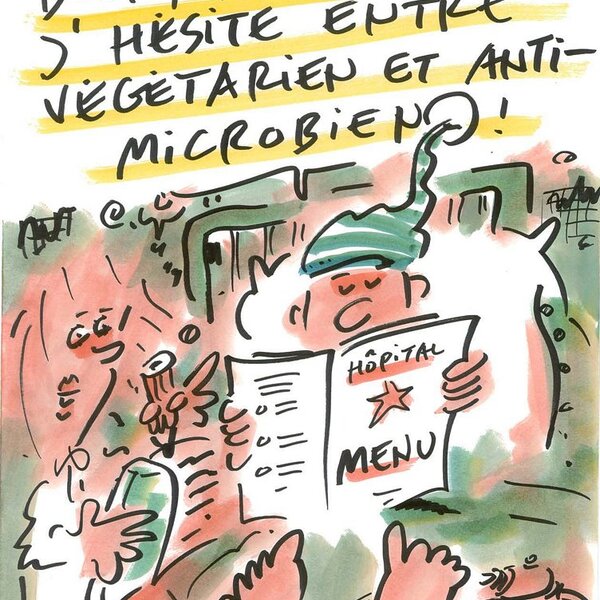 J'HÉSITE ENTRE
VÉGÉTARIEN ET ANTI-
MICROBIEN !
HÔPITAL
MENU